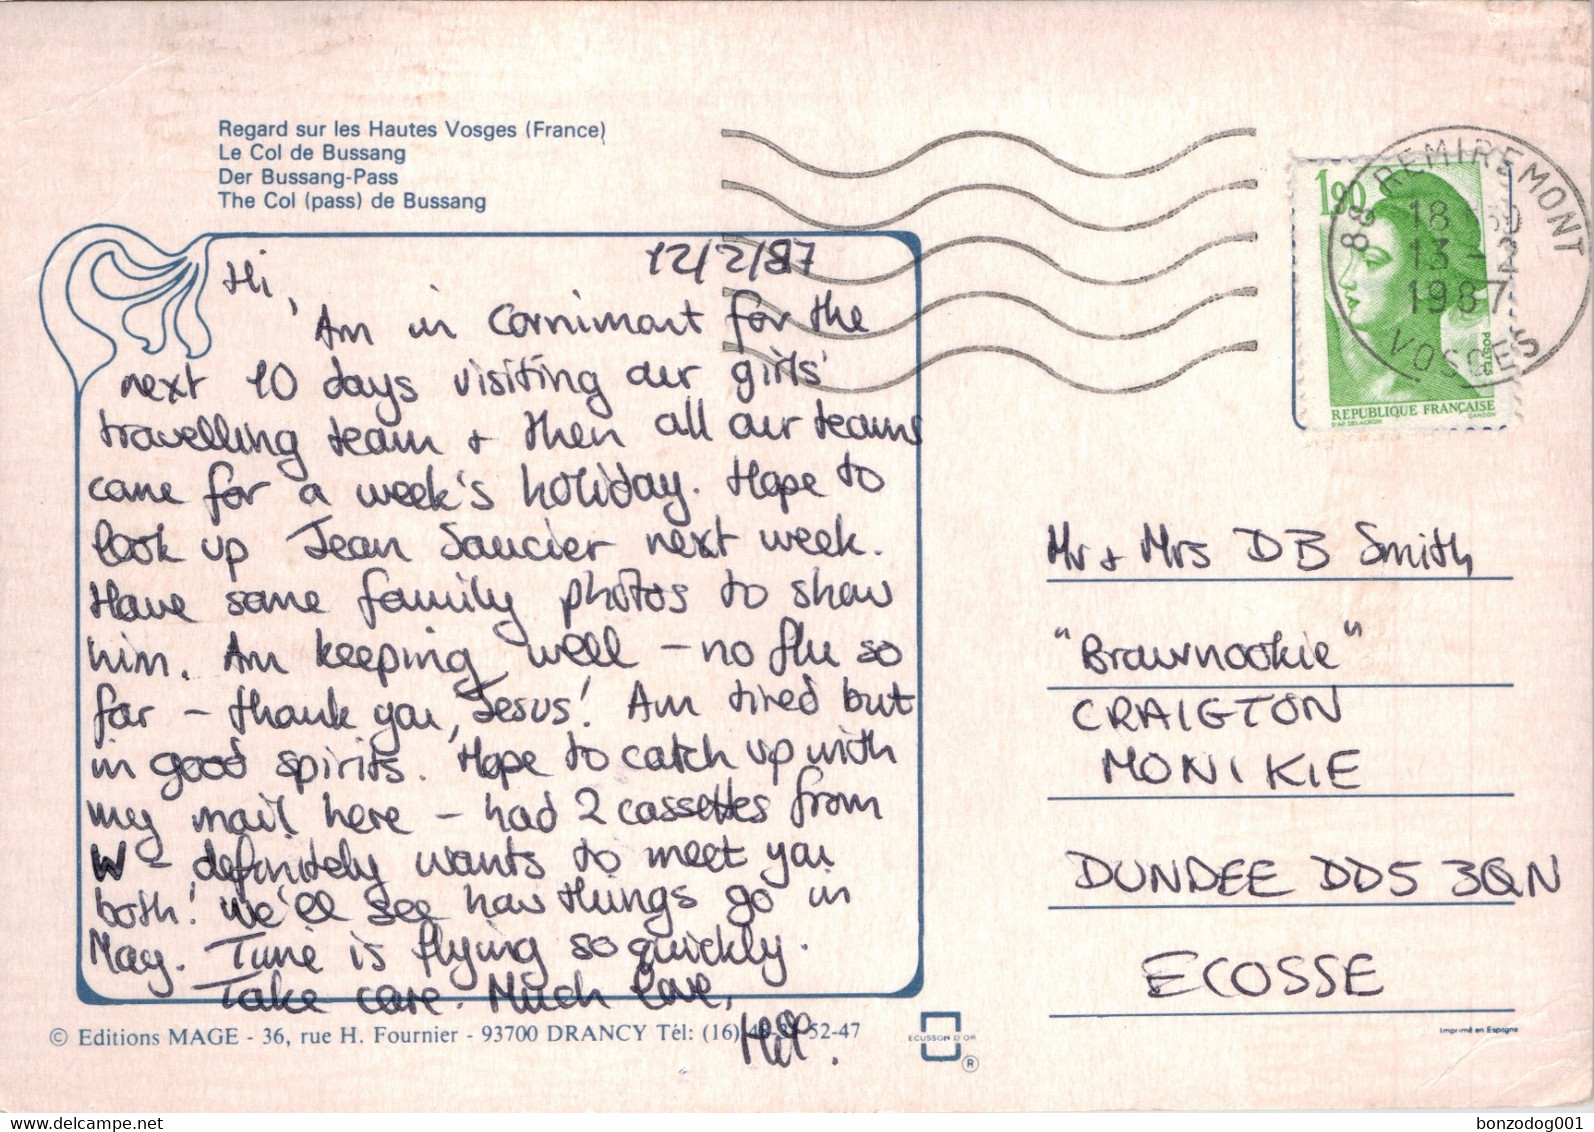 Regard sur les Hautes Vosges (France)
Le Col de Bussang
Der Bussang-Pass
The Col (pass) de Bussang
12/2/87
Hi,
Am in Cornimont for the
next 10 days visiting our girls'
travelling team + then all our teams
come for a week's holiday. Hope to
look up Jean Saucier next week.
Have some family photos to show
him. Am keeping well - no flu so
far - thank you, Jesus! Am tired but
in good spirits. Hope to catch up with
my mail here - had 2 cassettes from
W - definitely wants to meet you
both! We'll see how things go in
May. Time is flying so quickly.
Take care. Much love,
© Editions MAGE - 36, rue H. Fournier - 93700 DRANCY Tél: (16) 52-47
ECUSSON D'OR
®
1,90
POSTES
REPUBLIQUE FRANÇAISE
D'AP. DELACROIX
GANDON
88 REMIREMONT
18 30
13 - 2
1987
VOSGES
Mr + Mrs DB Smith
"Brawnookie"
CRAIGTON
MONIKIE
DUNDEE DD5 3QN
ECOSSE
Imprimé en Espagne
bonzodog001